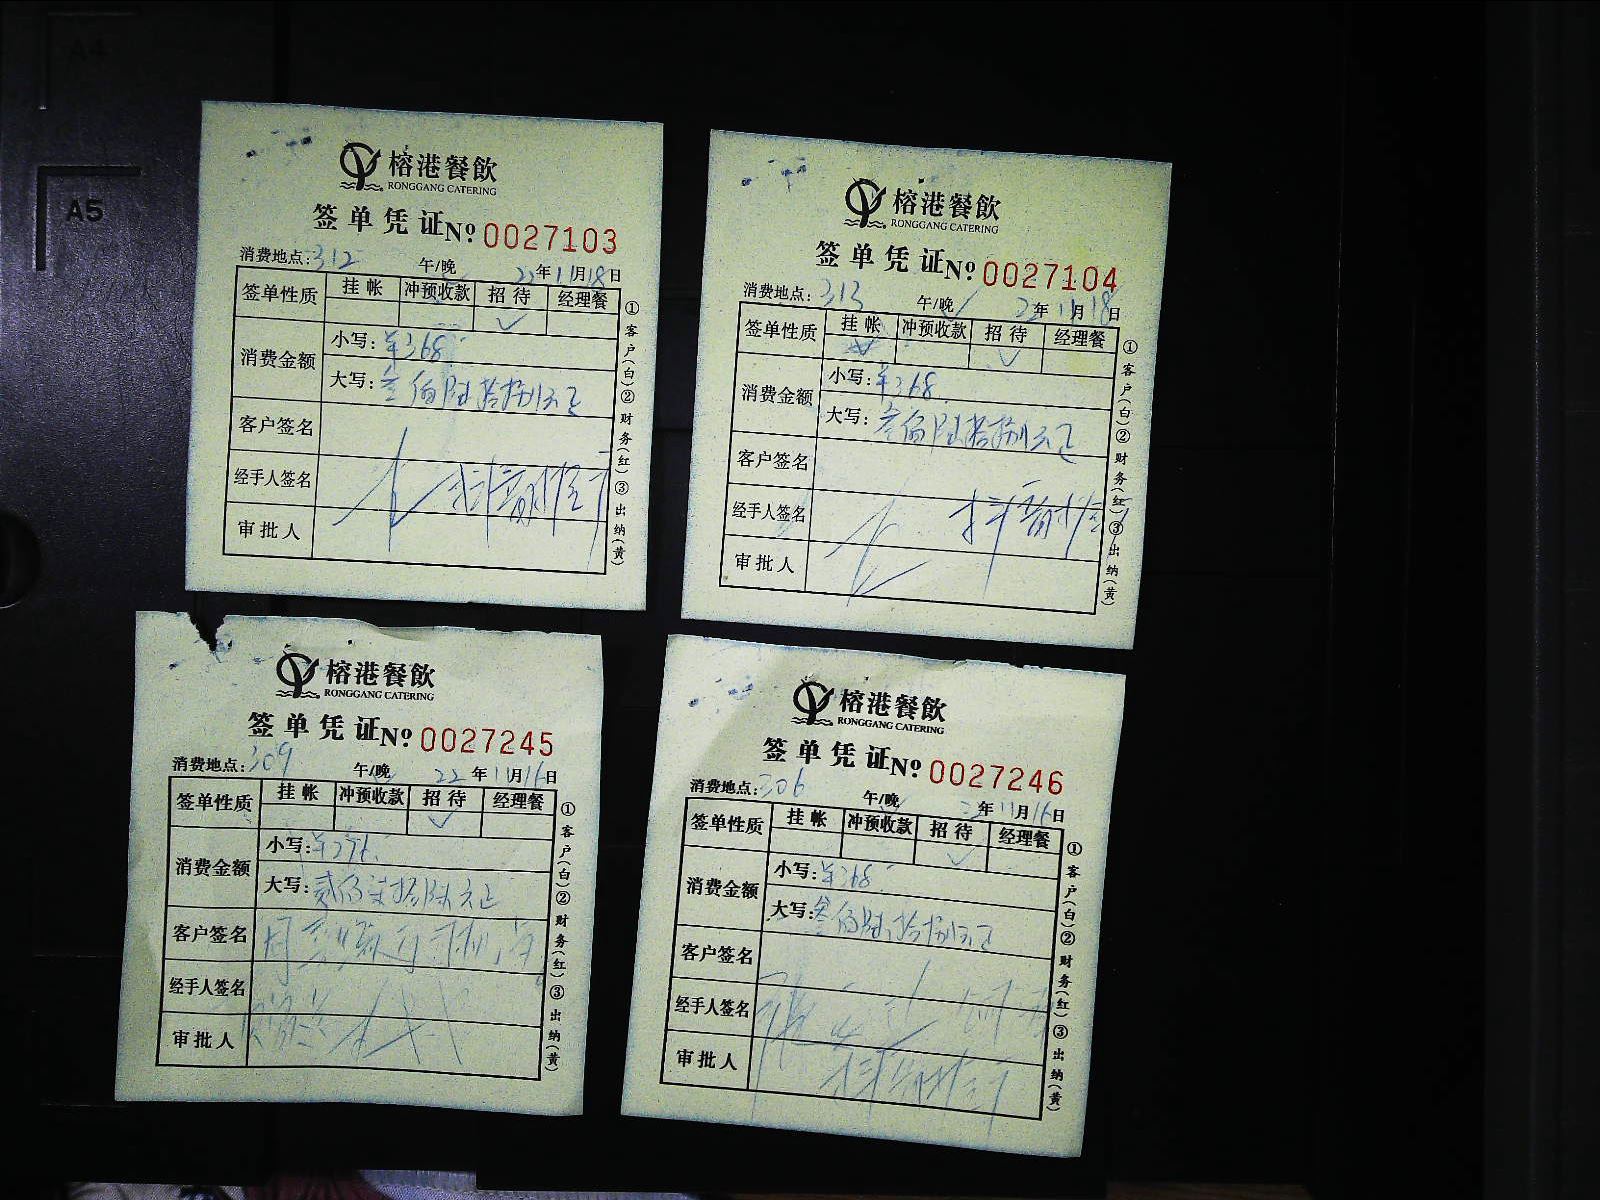 A4
A5
榕港餐飲
RONGGANG CATERING
签单凭证 Nº 0027103
消费地点:312 午/晚 22年11月18日
签单性质 挂帐 冲预收款 招待 经理餐
✓
消费金额 小写:¥368
大写:叁佰陆拾捌元正
客户签名
经手人签名
审批人
①客户(白)②财务(红)③出纳(黄)
榕港餐飲
RONGGANG CATERING
签单凭证 Nº 0027104
消费地点:313 午/晚 22年11月18日
签单性质 挂帐 冲预收款 招待 经理餐
✓
消费金额 小写:¥368
大写:叁佰陆拾捌元正
客户签名
经手人签名
审批人
①客户(白)②财务(红)③出纳(黄)
榕港餐飲
RONGGANG CATERING
签单凭证 Nº 0027245
消费地点:309 午/晚 22年11月16日
签单性质 挂帐 冲预收款 招待 经理餐
✓
消费金额 小写:¥276
大写:贰佰柒拾陆元正
客户签名
经手人签名
审批人
①客户(白)②财务(红)③出纳(黄)
榕港餐飲
RONGGANG CATERING
签单凭证 Nº 0027246
消费地点:306 午/晚 22年11月16日
签单性质 挂帐 冲预收款 招待 经理餐
✓
消费金额 小写:¥368
大写:叁佰陆拾捌元正
客户签名
经手人签名
审批人
①客户(白)②财务(红)③出纳(黄)